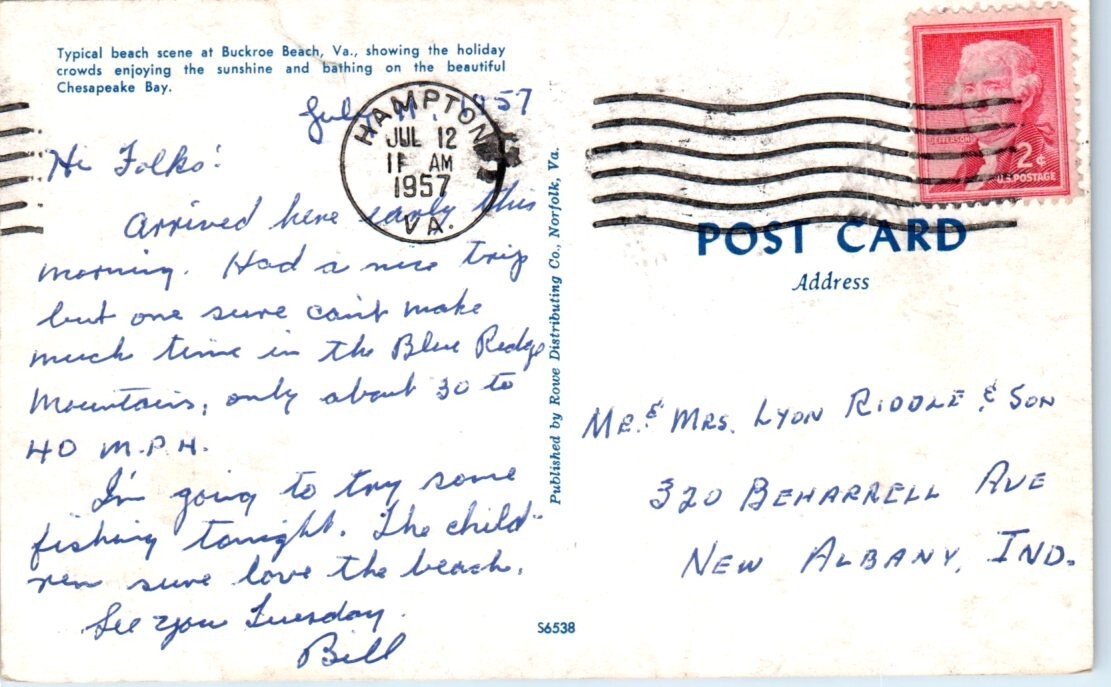 Typical beach scene at Buckroe Beach, Va., showing the holiday
crowds enjoying the sunshine and bathing on the beautiful
Chesapeake Bay.
July 11, 1957
HAMPTON
JUL 12
AM
1957
VA.
Hi Folks!
Arrived here early this
morning. Had a nice trip
but one sure can't make
much time in the Blue Ridge
Mountains, only about 30 to
40 M.P.H.
I'm going to try some
fishing tonight. The child-
ren sure love the beach.
See you Tuesday.
Bill
Published by Rowe Distributing Co., Norfolk, Va.
S6538
JEFFERSON
2¢
U.S. POSTAGE
POST CARD
Address
MR. & MRS. LYON RIDDLE & SON
320 BEHARRELL AVE
NEW ALBANY, IND.